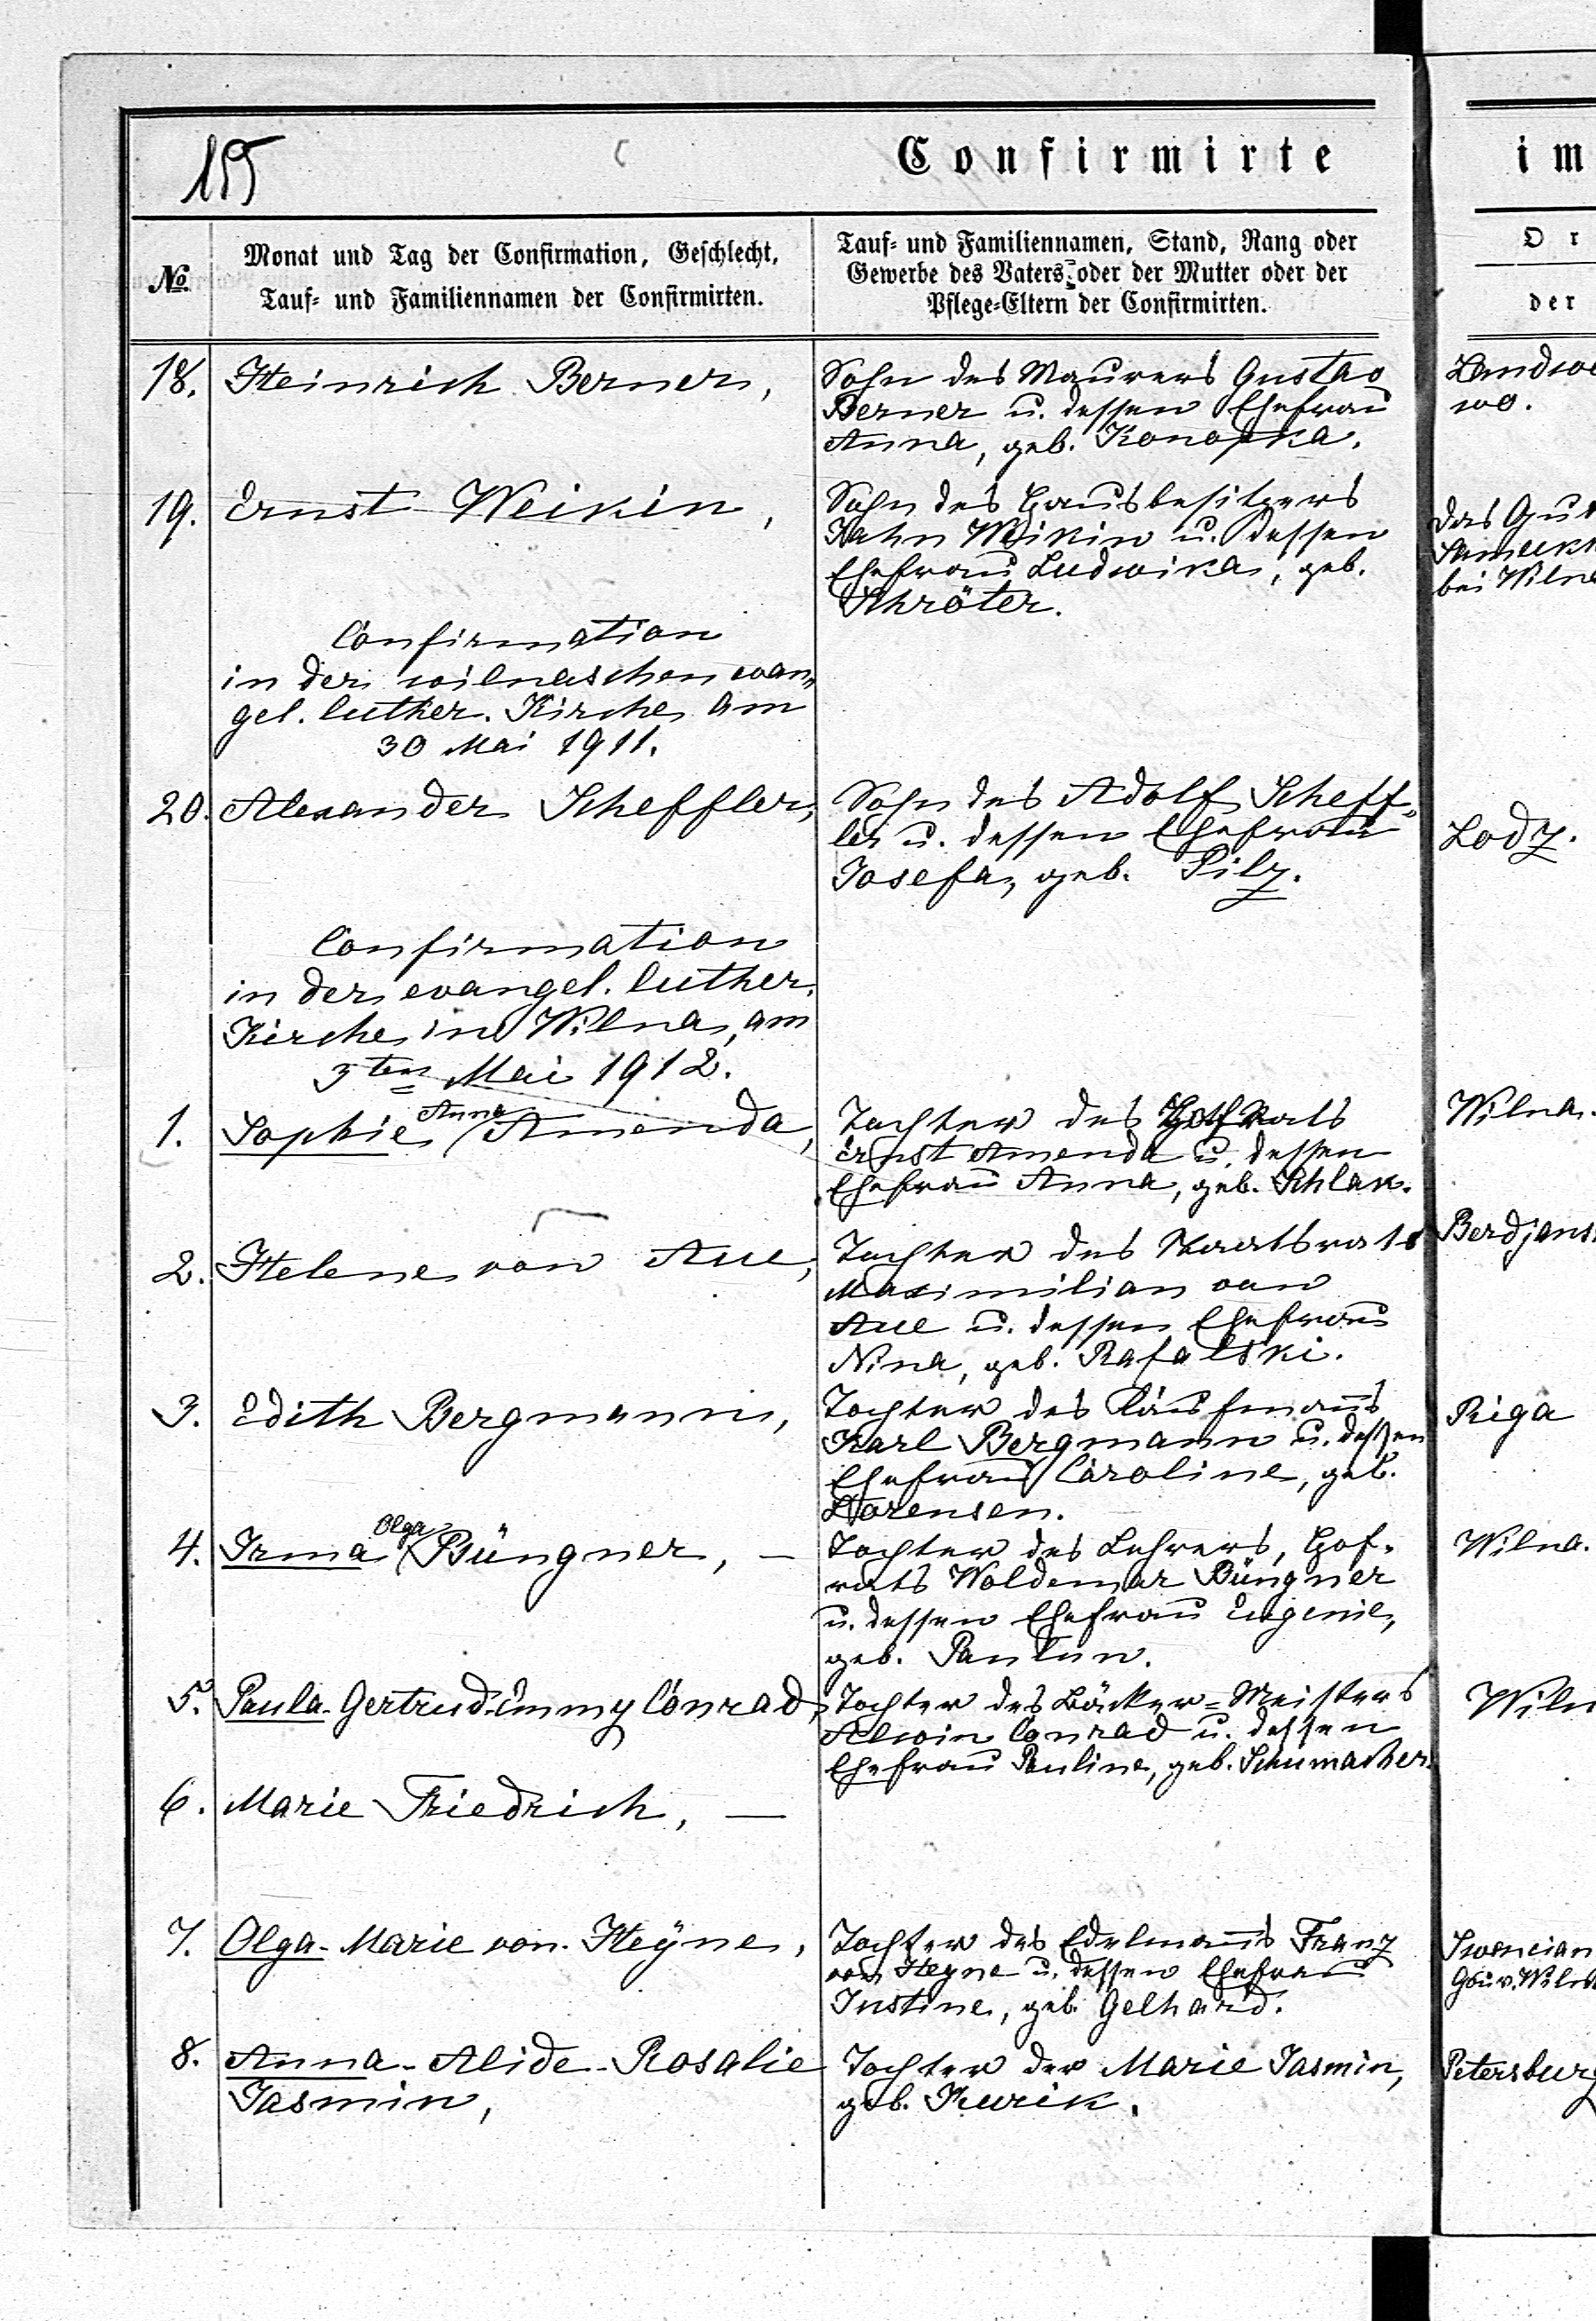 155
Confirmirte
im
№
Monat und Tag der Confirmation, Geschlecht,
Tauf- und Familiennamen der Confirmirten.
Tauf- und Familiennamen, Stand, Rang oder
Gewerbe des Vaters oder der Mutter oder der
Pflege-Eltern der Confirmirten.
Or
der
18. Heinrich Berner,
Sohn des Maurers Gustav
Berner u. dessen Ehefrau
Anna, geb. Konopka.
Landwo
wo.
19. Ernst Weikin,
Sohn des Hausbesitzers
Jahn Weikin u. dessen
Ehefrau Ludwika, geb.
Schröter.
das Gut
bei Wilna
Confirmation
in der wilnaschen evan„
gel. luther. Kirche am
30 Mai 1911.
20. Alexander Scheffler,
Sohn des Adolf Scheff„
ler u. dessen Ehefrau
Josefa, geb. Pilz.
Lodz.
Confirmation
in der evangel. luther.
Kirche in Wilna, am
3ten Mai 1912.
1. Sophie Anna Amenda,
Tochter des Hofrats
Ernst Amenda u. dessen
Ehefrau Anna, geb. Schlak.
Wilna.
2. Helene von Aue,
Tochter des Staatsrats
Maximilian von
Aue u. dessen Ehefrau
Nina, geb. Rafalski.
Berdjans
3. Edith Bergmann,
Tochter des Kaufmanns
Karl Bergmann u. dessen
Ehefrau Caroline, geb.
Lorensen.
Riga
4. Irma Olga Büngner, —
Tochter des Lehrers, Hof-
rats Woldemar Büngner
u. dessen Ehefrau Eugenie,
geb. Pantun.
Wilna.
5. Paula-Gertrud-Emmy Conrad,
Tochter des Bäcker-Meisters
Alwin Conrad u. dessen
Ehefrau Pauline, geb. Schumacher.
Wiln
6. Marie Friedrich, —
7. Olga-Marie von Heyne,
Tochter des Edelmanns Franz
von Heyne u. dessen Ehefrau
Justine, geb. Gelhard.
Swencian
Gouv. Wilna
8. Anna-Alide-Rosalie
Jasmin,
Tochter der Marie Jasmin,
geb. Kurik.
Petersburg